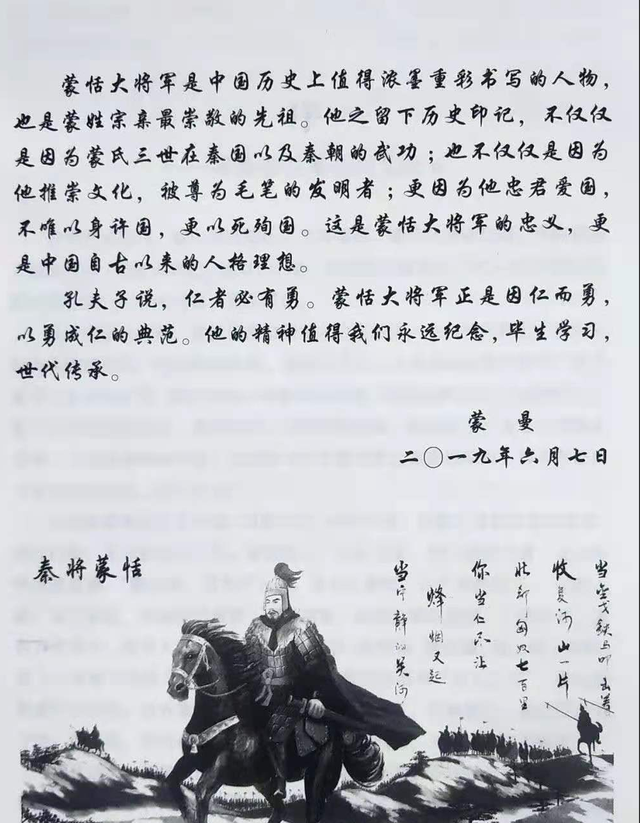 蒙恬大将军是中国历史上值得浓墨重彩书写的人物，
也是蒙姓宗亲最崇敬的先祖。他之留下历史印记，不仅仅
是因为蒙氏三世在秦国以及秦朝的武功；也不仅仅是因为
他推崇文化，被尊为毛笔的发明者；更因为他忠君爱国，
不唯以身许国，更以死殉国。这是蒙恬大将军的忠义，更
是中国自古以来的人格理想。
孔夫子说，仁者必有勇。蒙恬大将军正是因仁而勇，
以勇成仁的典范。他的精神值得我们永远纪念，毕生学习，
世代传承。
蒙曼
二〇一九年六月七日
秦将蒙恬
当金戈铁马叩
收复河山一片
匈奴七百里
你当仁不让
烽烟又起
当宁静